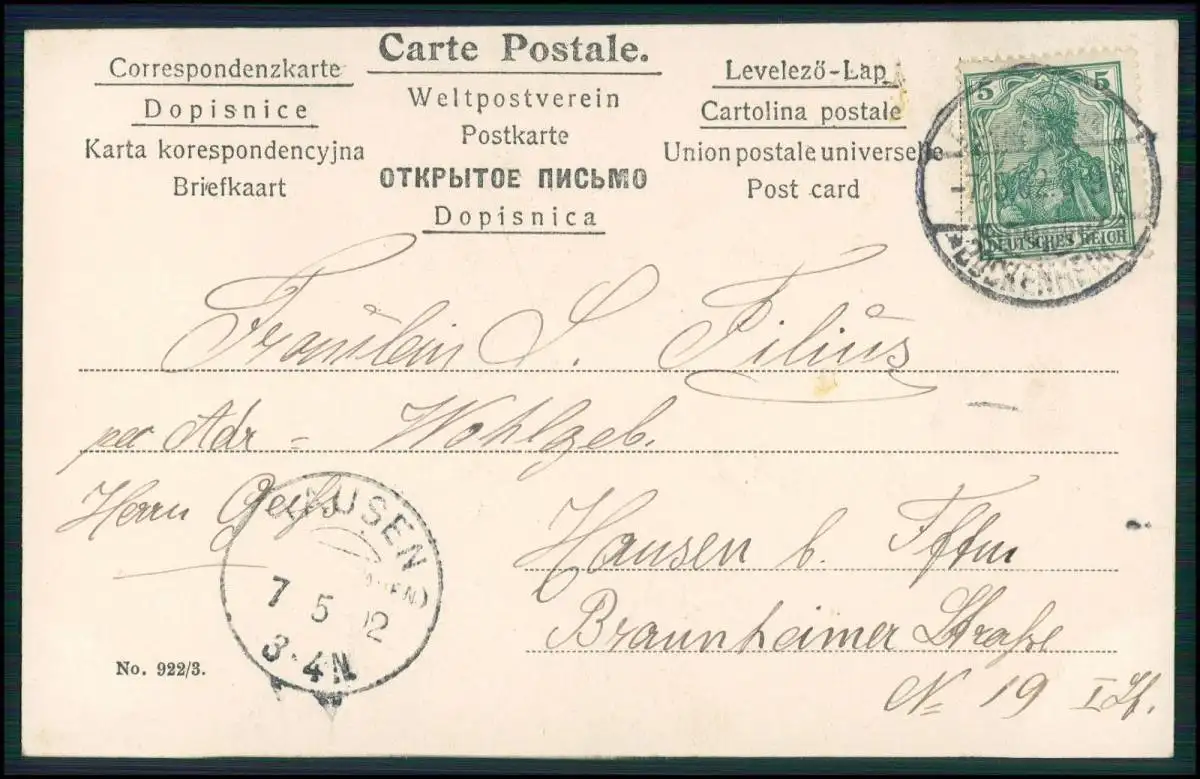 Carte Postale.
Correspondenzkarte
Dopisnice
Karta korespondencyjna
Briefkaart
Weltpostverein
Postkarte
ОТКРЫТОЕ ПИСЬМО
Dopisnica
Levelező-Lap
Cartolina postale
Union postale universelle
Post card
5 5
DEUTSCHES REICH
BOCKENHEIM
Fräulein S. Filius
per Adr = Wohlgeb.
Herrn
Hausen b. Fftm
Braunheimer Straße
No 19 I St.
HAUSEN
7 5 02
3-4N
No. 922/3.